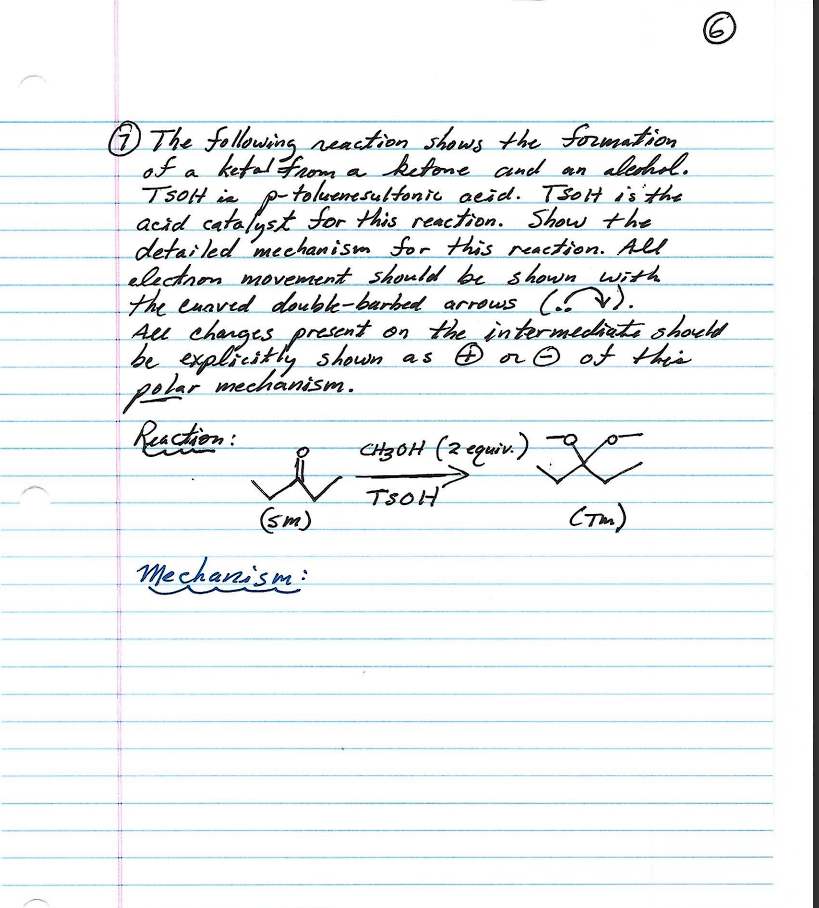 6
7 The following reaction shows the formation
of a ketal from a ketone and an alcohol.
TSOH is p-toluenesulfonic acid. TSOH is the
acid catalyst for this reaction. Show the
detailed mechanism for this reaction. All
electron movement should be shown with
the curved double-barbed arrows (..⤵).
All charges present on the intermediate should
be explicitly shown as ⊕ or ⊖ of this
polar mechanism.
Reaction:
O
CH3OH (2 equiv.)
TSOH
O O
(SM)
(TM)
Mechanism: